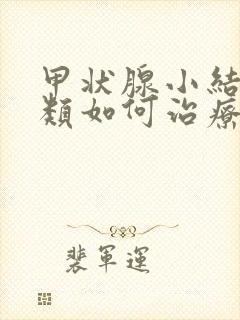 甲状腺小結
類如何治療
裴軍運